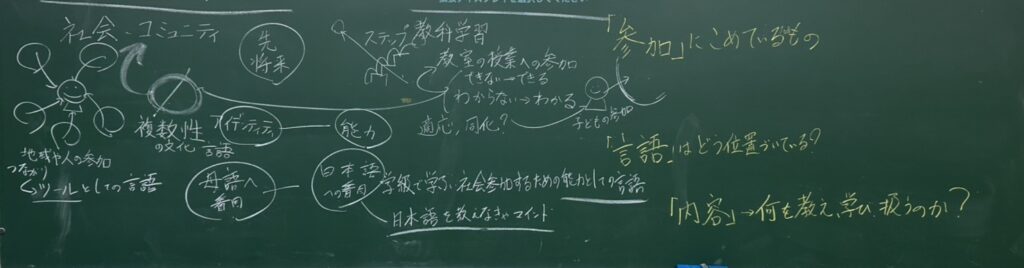 社会・コミュニティ
先
将来
ステップ
教科学習
教室の授業への参加
できない→できる
わからない→わかる
適応、同化?
子どもの参加
複数性
の文化 言語
アイデンティティ
能力
地域や人の参加
つながり
↳ツールとしての言語
母語へ
着目
日本語
への着目
学級で学ぶ、社会参加するための能力としての言語
日本語を教えなきゃマインド
「参加」にこめているもの
「言語」はどう位置づいている?
「内容」→何を教え、学び、扱うのか?